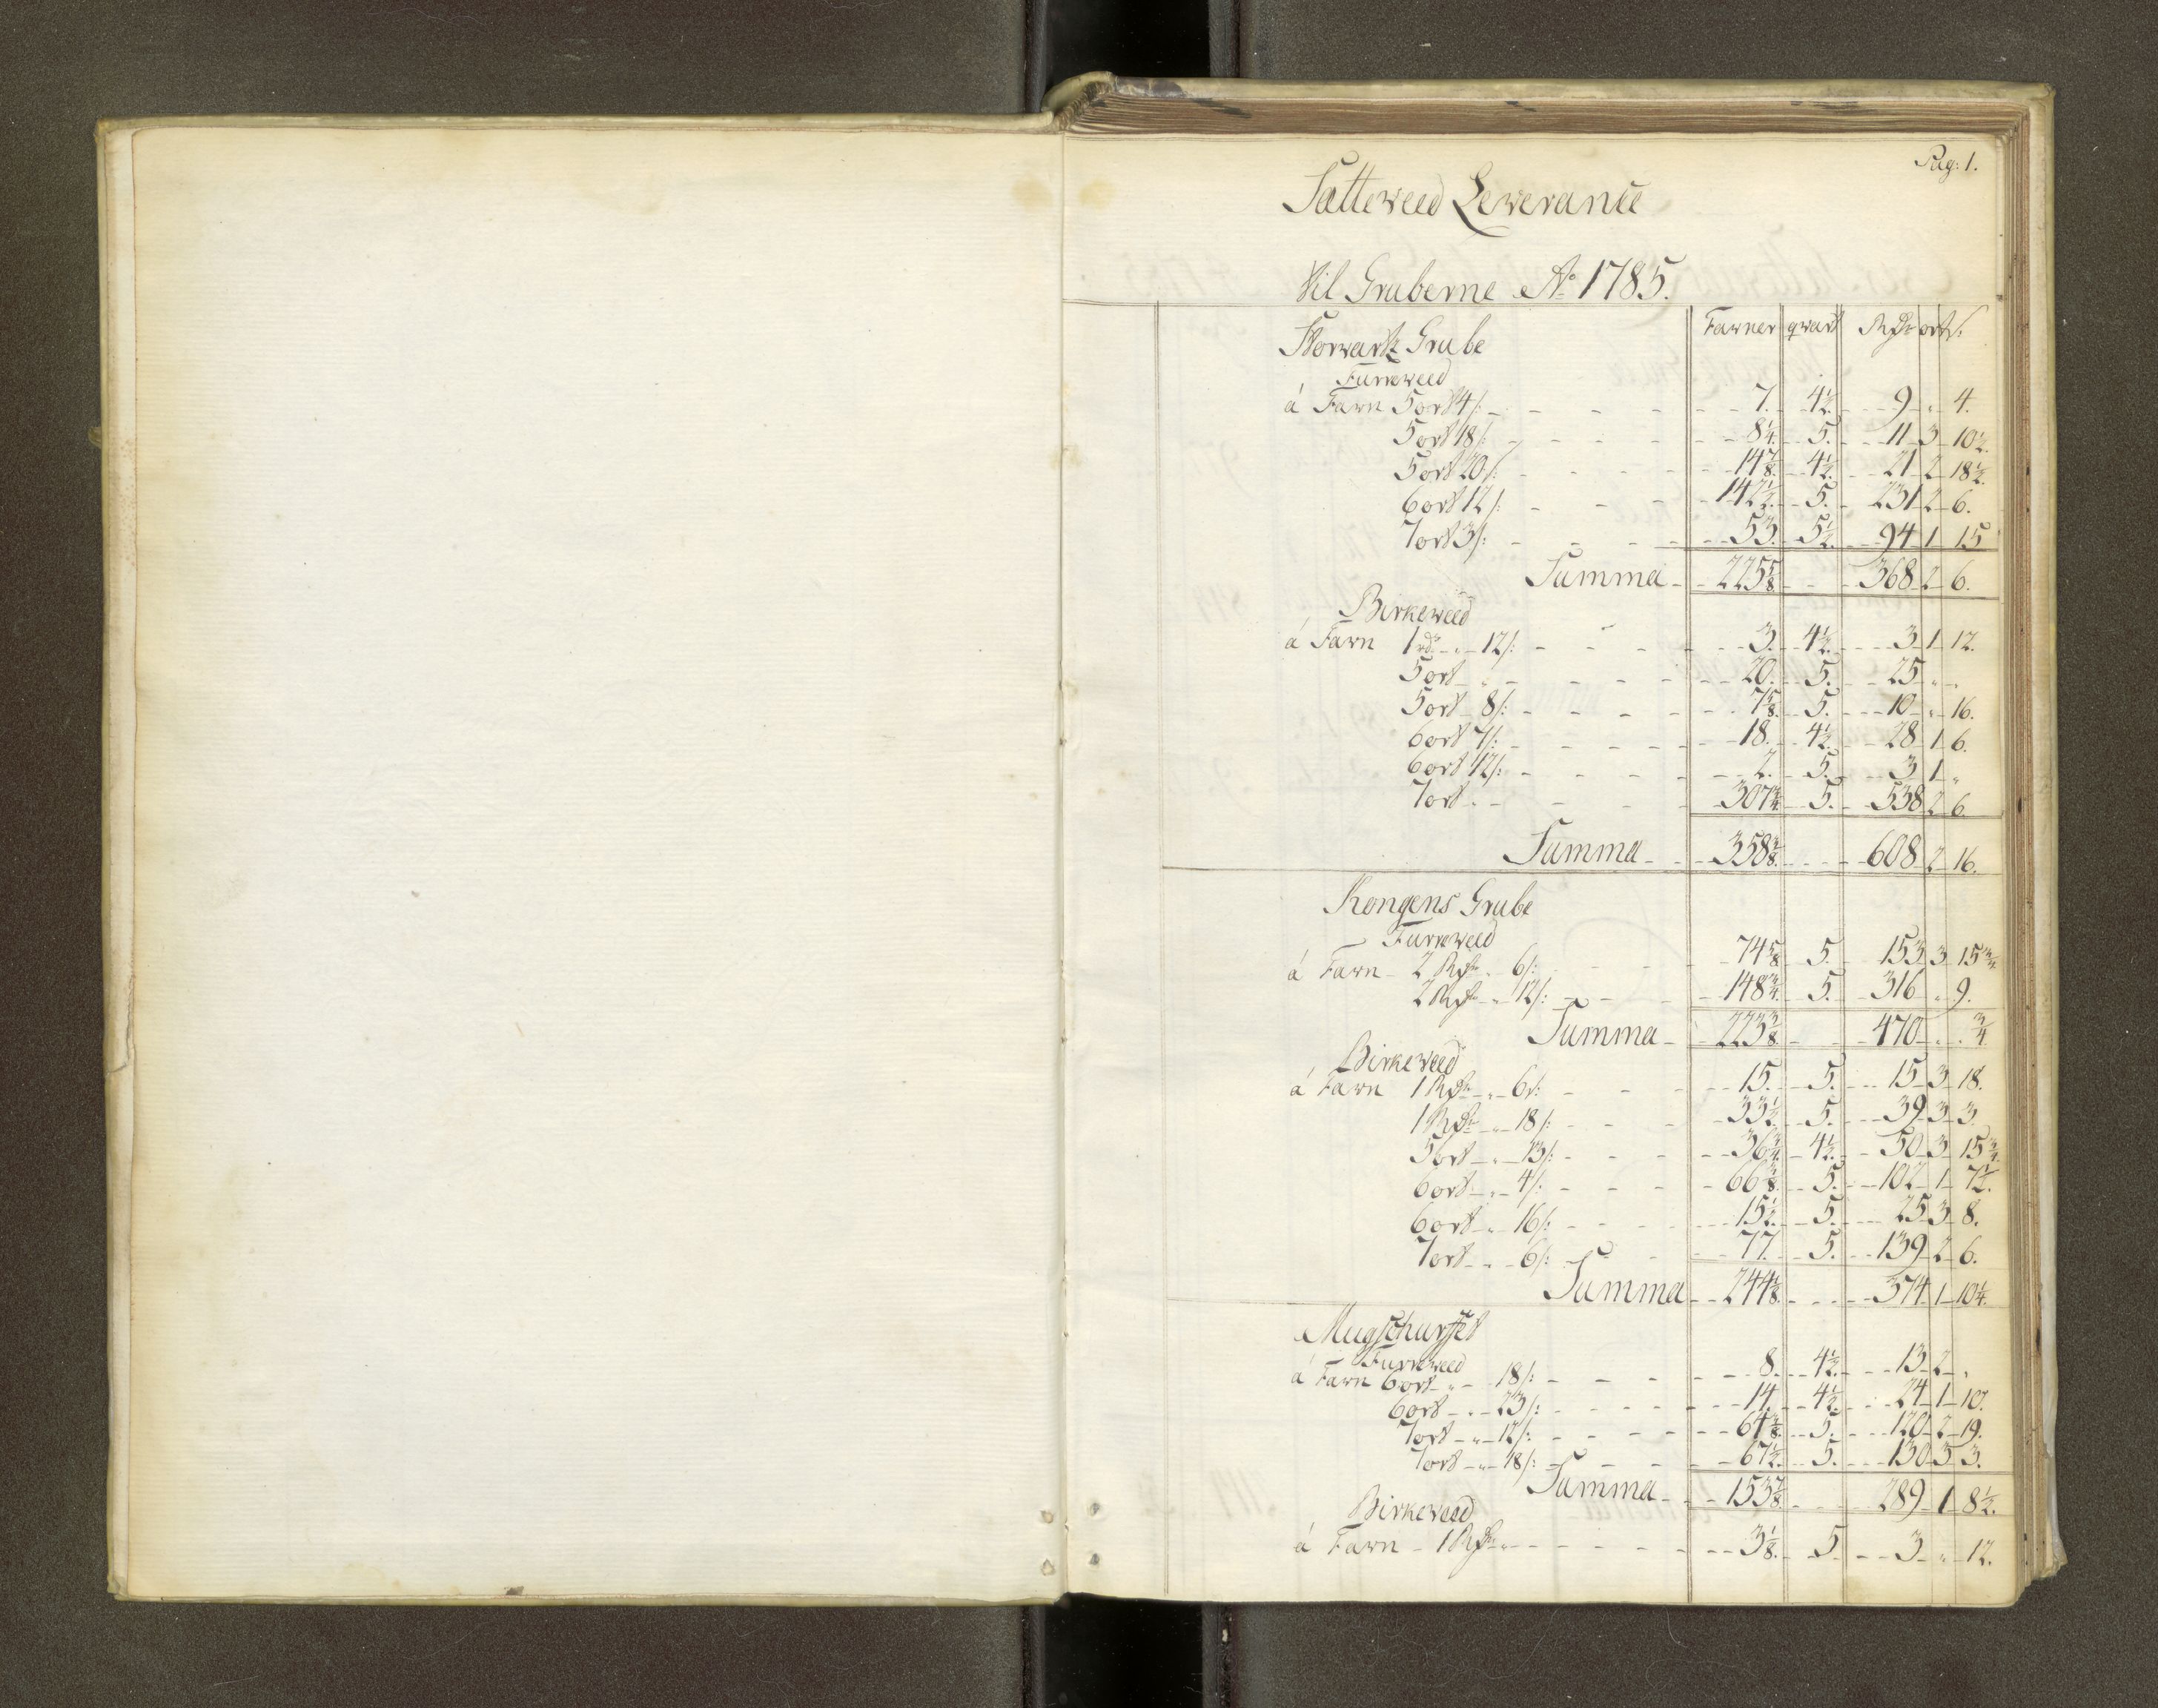 Pag: 1.
Sætteweed Leverance
til Gruberne Ao 1785.
Farner qwart Rdr ort s.
Storwartz Grube
Furreweed
á Farn 5 ort 4 /: 7. 4½. 9 " 4.
5 ort 18 /: 8¼. 5. 11 3 10½.
5 ort 20 /: 14⅞. 4½. 21 2 18½.
6 ort 12 /: 142½. 5. 231 2 6.
7 ort 3 /: 53. 5½. 94 1 15
Summa 225⅝ 368 2 6.
Birkeweed
á Farn 1 rdr " 12 /: 3. 4½. 3 1 12.
5 ort " 20. 5. 25 " "
5 ort 8 /: 7⅝. 5. 10 " 16.
6 ort 7 /: 18. 4½. 28 1 6.
6 ort 12 /: 2. 5. 3 1 "
7 ort " 307¾. 5. 538 2 6.
Summa 358⅜. 608 2 16.
Kongens Grube
Furreweed
á Farn 2 Rdr " 6 /: 74⅝ 5. 153 3 15¾.
2 Rdr " 12 /: 148¾. 5. 316 " 9.
Summa 223⅜ 470 " ¾
Birkeweed
á Farn 1 Rdr " 6 /: 15. 5. 15 3 18.
1 Rdr " 18 /: 33½. 5. 39 3 3.
5 ort " 13 /: 36¾. 4½. 50 3 15¾.
6 ort " 4 /: 66⅜. 5. 102 1 7½.
6 ort " 16 /: 15½. 5. 25 3 8.
7 ort " 6 /: 77. 5. 139 2 6.
Summa 244⅛. 374 1 10¼.
Mugschurffet
Furreweed
á Farn 6 ort " 18 /: 8. 4½. 13 2 "
6 ort " 23 /: 14. 4½. 24 1 10.
7 ort " 12 /: 64⅜. 5. 120 2 19.
7 ort " 18 /: 67½. 5. 130 3 3.
Summa 153⅞. 289 1 8½.
Birkeweed
á Farn 1 Rdr " 3⅛. 5 3 " 12.